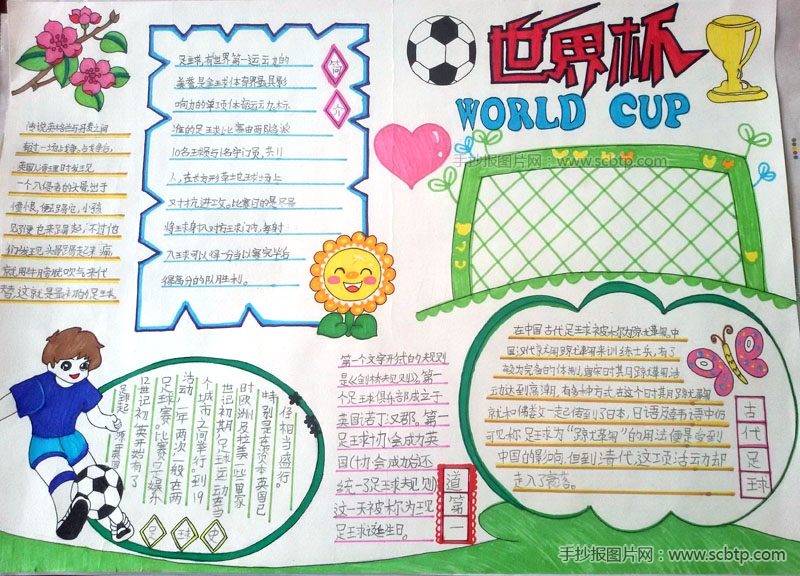 世界杯
WORLD CUP
手抄报图片网：www.scbtp.com
简介
足球,有"世界第一运动"的
美誉,是全球体育界最具影
响力的单项体育运动,标
准的足球比赛由两队各派
10名球员与1名守门员,共11
人,在长方形草地球场上
对抗进攻。比赛目的是尽量
将足球射入对方球门内,每射
入球可以得一分,当比赛完毕后
得高分的队胜利。
传说英格兰与丹麦之间
有过一场战争,战争后,
英国人清理时发现
一个入侵者的头骨出于
愤恨,便去踢它,小孩
见了便也来了踢起,不过他
们发现头骨踢起来脚痛,
就用牛膀胱吹气来代
替,这就是最初的足球。
足球起源英国
12世纪初英国开始有了
足球赛,比赛可是娱乐
活动,一年两次一般在两
个城市之间举行。到19
世纪初期,足球运动在当
时欧洲及拉美一些国家
特别是在资本英国已
经相当盛行。
足球史
第一个文字形式的规则
是《剑桥规则》,第一
个足球俱乐部成立于
英国(苦丁)汉郡。第一
足球协会成功英
国(协会成功后还
统一了足球规则)
这一天被称为现
足球诞生日。
道第一
在中国古代足球被称为蹴鞠,中
国汉代就用蹴鞠来训练士兵,有了
较为完备的体制,唐宋时其月蹴鞠活
动达到高潮,有多种方式,在这个时其月蹴鞠
就和佛教一起传到了日本,日语及韩语中仍
可见称足球为"蹴鞠"的用法便是受到
中国的影响,但到清代,这项活动却
走入了衰落。
古代足球
手抄报图片网：www.scbtp.com